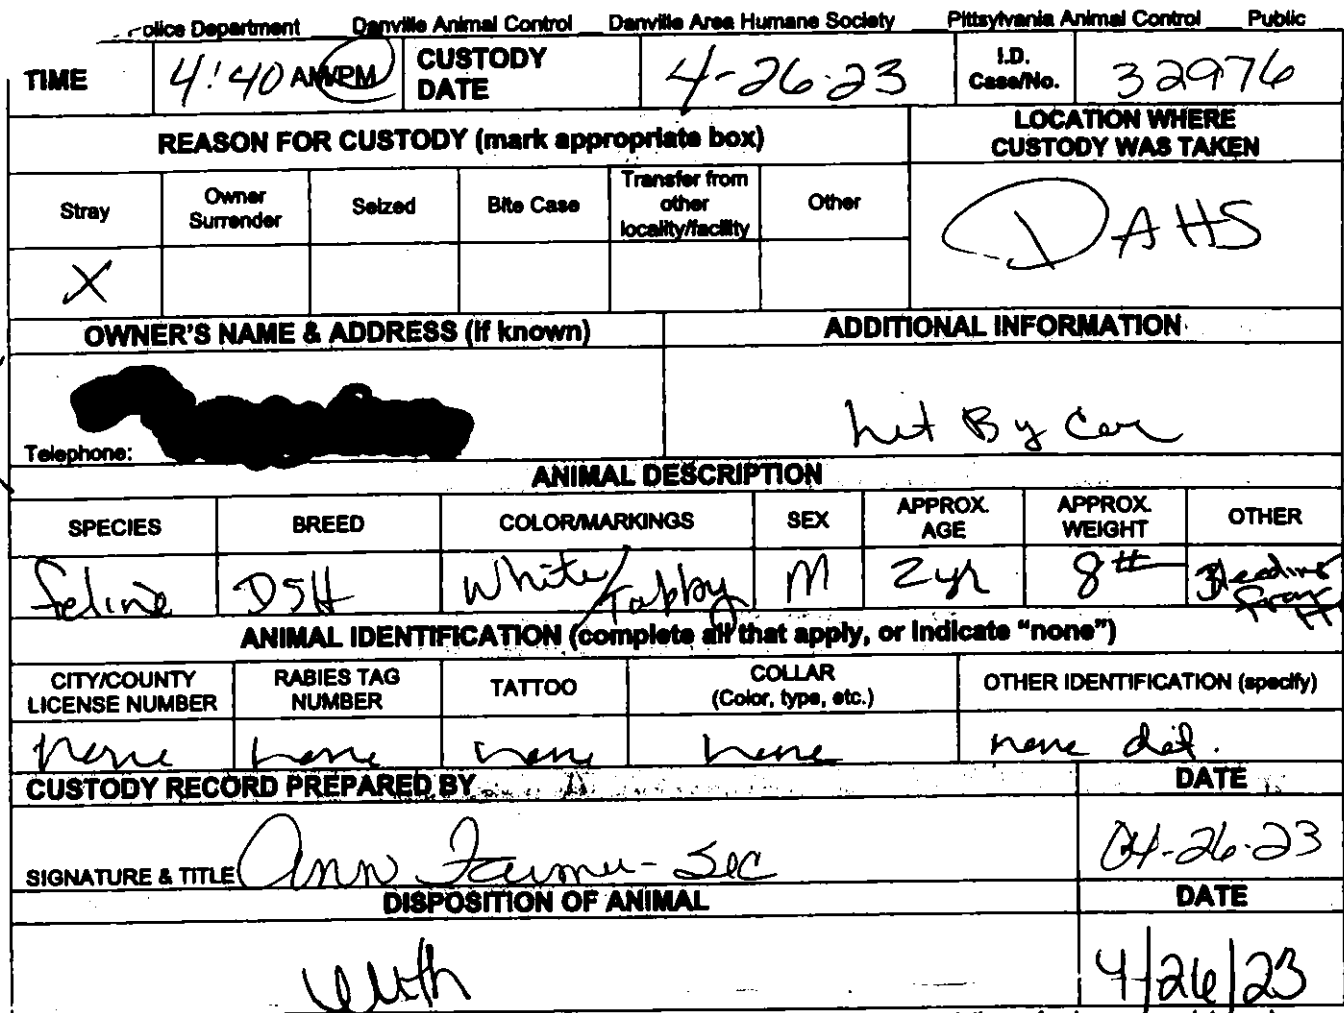 olice Department Danville Animal Control Danville Area Humane Society Pittsylvania Animal Control Public
TIME 4:40 AM/PM CUSTODY DATE 4-26-23 I.D. Case/No. 32976
REASON FOR CUSTODY (mark appropriate box) LOCATION WHERE CUSTODY WAS TAKEN
Stray Owner Surrender Seized Bite Case Transfer from other locality/facility Other
X DAHS
OWNER'S NAME & ADDRESS (if known) ADDITIONAL INFORMATION
hit By Car
Telephone:
ANIMAL DESCRIPTION
SPECIES BREED COLOR/MARKINGS SEX APPROX. AGE APPROX. WEIGHT OTHER
feline DSH White/Tabby M 2yr 8# Bleeding from
ANIMAL IDENTIFICATION (complete all that apply, or indicate "none")
CITY/COUNTY LICENSE NUMBER RABIES TAG NUMBER TATTOO COLLAR (Color, type, etc.) OTHER IDENTIFICATION (specify)
none none none none none
CUSTODY RECORD PREPARED BY DATE
SIGNATURE & TITLE Ann - Sec 04-26-23
DISPOSITION OF ANIMAL DATE
euth 4/26/23